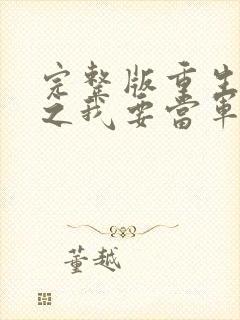 完整版重生
之我要当军
董越